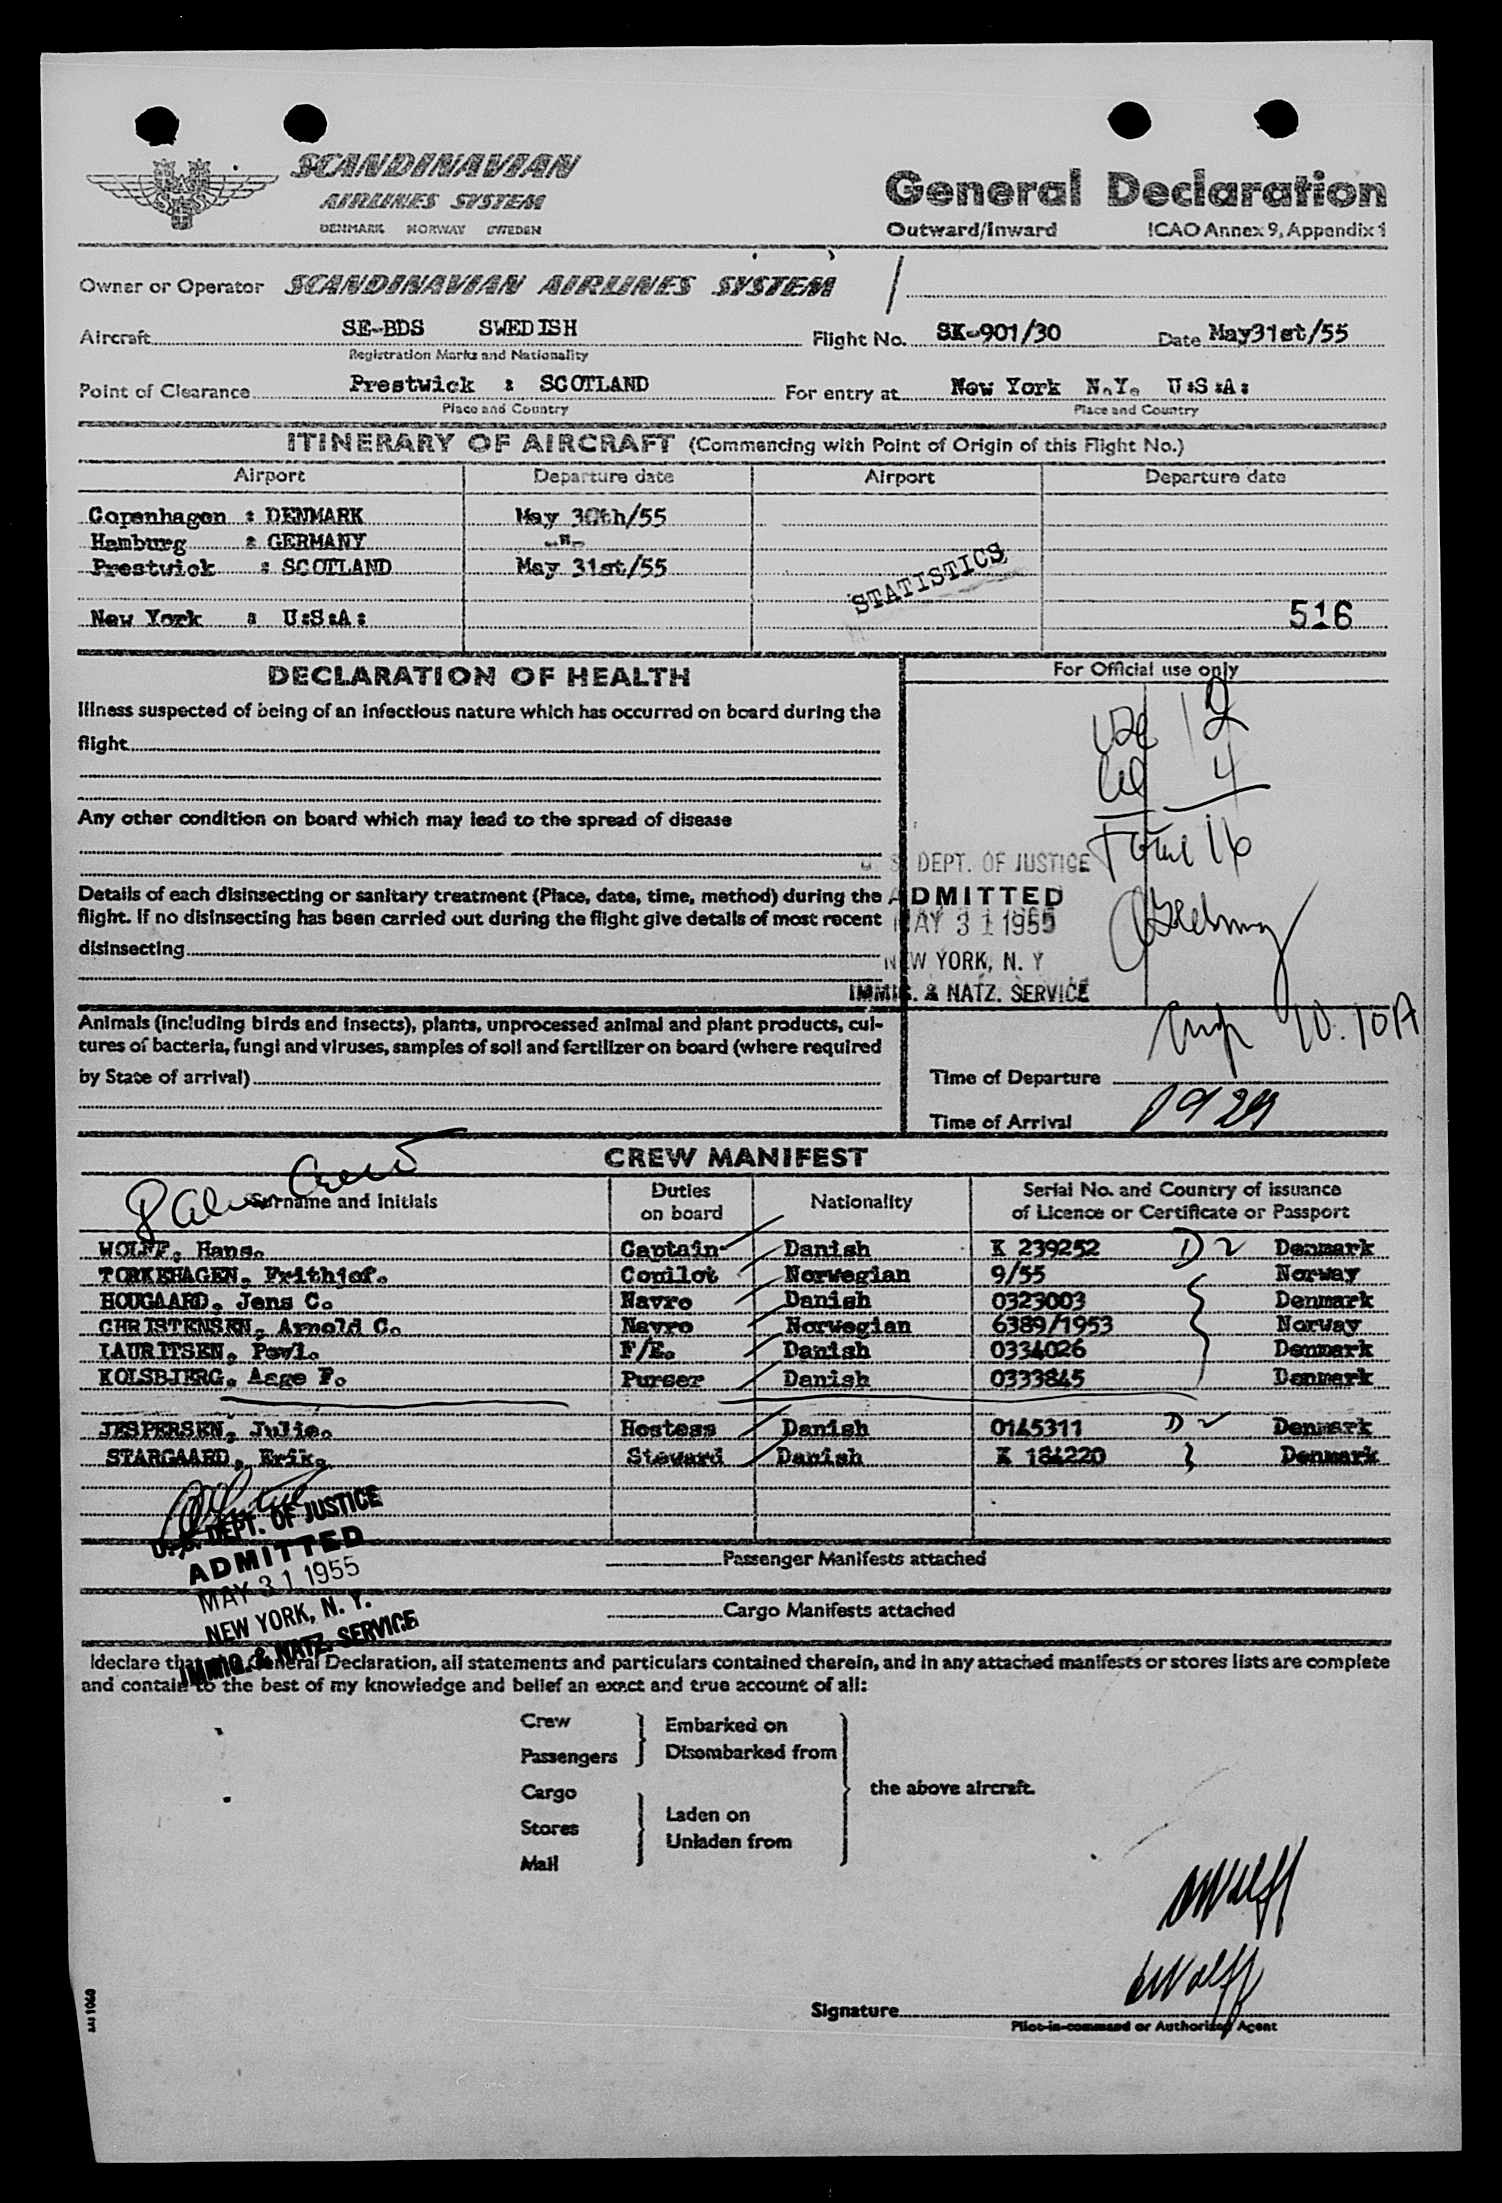 SCANDINAVIAN
AIRLINES SYSTEM
DENMARK NORWAY SWEDEN
General Declaration
Outward/Inward ICAO Annex 9, Appendix 1
Owner or Operator SCANDINAVIAN AIRLINES SYSTEM
Aircraft SE-BDS SWEDISH Flight No. SK-901/30 Date May31st/55
Registration Marks and Nationality
Point of Clearance Prestwick : SCOTLAND For entry at New York N.Y. U:S:A:
Place and Country Place and Country
ITINERARY OF AIRCRAFT (Commencing with Point of Origin of this Flight No.)
Airport Departure date Airport Departure date
Copenhagen : DENMARK May 30th/55
Hamburg : GERMANY -"-
Prestwick : SCOTLAND May 31st/55
STATISTICS
New York : U:S:A: 516
DECLARATION OF HEALTH
For Official use only
Illness suspected of being of an infectious nature which has occurred on board during the
flight
12
4
Any other condition on board which may lead to the spread of disease
Total 16
U. S. DEPT. OF JUSTICE
ADMITTED
MAY 31 1955
NEW YORK, N. Y
IMMIG. & NATZ. SERVICE
Details of each disinsecting or sanitary treatment (Place, date, time, method) during the
flight. If no disinsecting has been carried out during the flight give details of most recent
disinsecting
Animals (including birds and insects), plants, unprocessed animal and plant products, cul-
tures of bacteria, fungi and viruses, samples of soil and fertilizer on board (where required
by State of arrival)
10.10A
Time of Departure
Time of Arrival 0924
CREW MANIFEST
Crew
Surname and Initials Duties on board Nationality Serial No. and Country of issuance of Licence or Certificate or Passport
WOLFF, Hans. Captain Danish K 239252 D2 Denmark
TORKEHAGEN, Frithjof. Copilot Norwegian 9/55 Norway
HOUGAARD, Jens C. Navro Danish 0323003 Denmark
CHRISTENSEN, Arnold C. Navro Norwegian 6389/1953 Norway
LAURITSEN, Povl. F/E. Danish 0334026 Denmark
KOLSBJERG, Aage F. Purser Danish 0333845 Denmark
JESPERSEN, Julie. Hostess Danish 0145311 D2 Denmark
STARGAARD, Erik. Steward Danish K 184220 Denmark
U.S. DEPT. OF JUSTICE
ADMITTED
MAY 31 1955
NEW YORK, N. Y.
IMMIG. & NATZ. SERVICE
Passenger Manifests attached
Cargo Manifests attached
I declare that General Declaration, all statements and particulars contained therein, and in any attached manifests or stores lists are complete
and contain to the best of my knowledge and belief an exact and true account of all:
Crew
Passengers
Embarked on
Disembarked from
Cargo
Stores
Mail
Laden on
Unladen from
the above aircraft.
HWolff
HWolff
Signature
Pilot-in-command or Authorized Agent